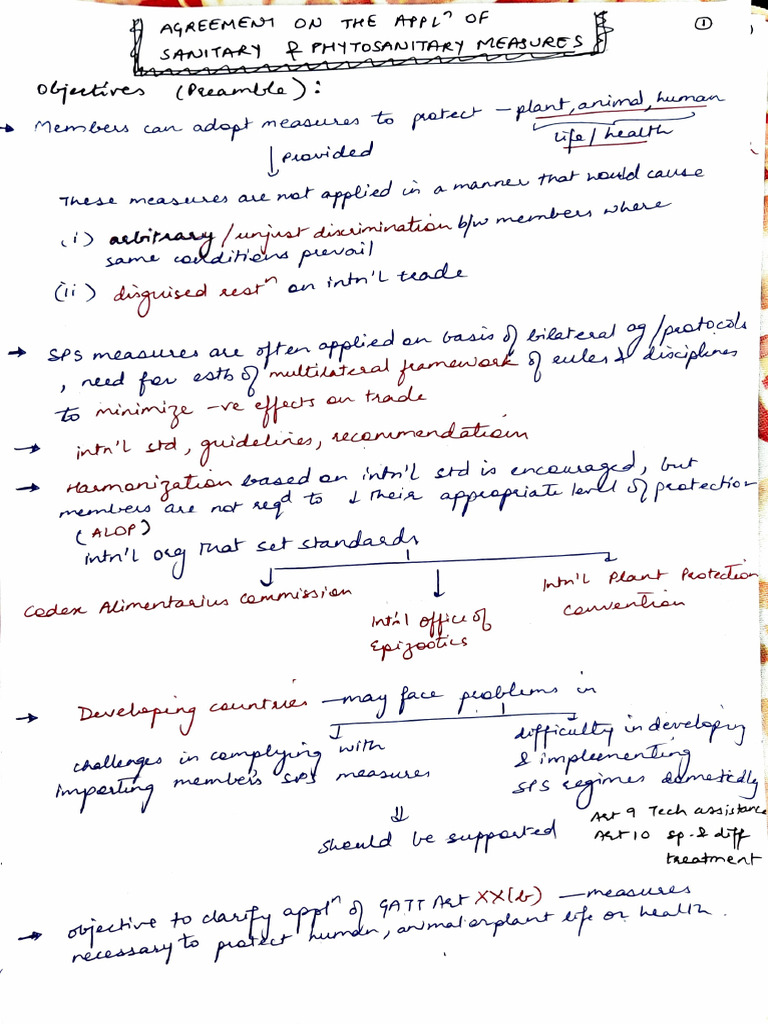 ①
AGREEMENT ON THE APPLⁿ OF
SANITARY & PHYTOSANITARY MEASURES
Objectives (Preamble):
→ Members can adopt measures to protect – plant, animal, human
life/health
↓ Provided
These measures are not applied in a manner that would cause
(i) arbitrary/unjust discrimination b/w members where
same conditions prevail
(ii) disguised restⁿ on intn'l trade
→ SPS measures are often applied on basis of bilateral ag/protocols
, need for estb of multilateral framework of rules & disciplines
to minimize -ve effects on trade
→ intn'l std, guidelines, recommendation
→ Harmonization based on intn'l std is encouraged, but
members are not reqd to ↓ their appropriate level of protection
(ALOP)
intn'l org that set standards
Codex Alimentarius Commission
Int'l office of
Epizootics
Intn'l Plant Protection
Convention
→ Developing countries – may face problems in
challenges in complying with
importing member's SPS measures
difficulty in developing
& implementing
SPS regimes domestically
⇓
should be supported
Art 9 Tech assistance
Art 10 sp. & diff
treatment
→ objective to clarify applⁿ of GATT Art XX(b) – measures
necessary to protect human, animal or plant life or health.